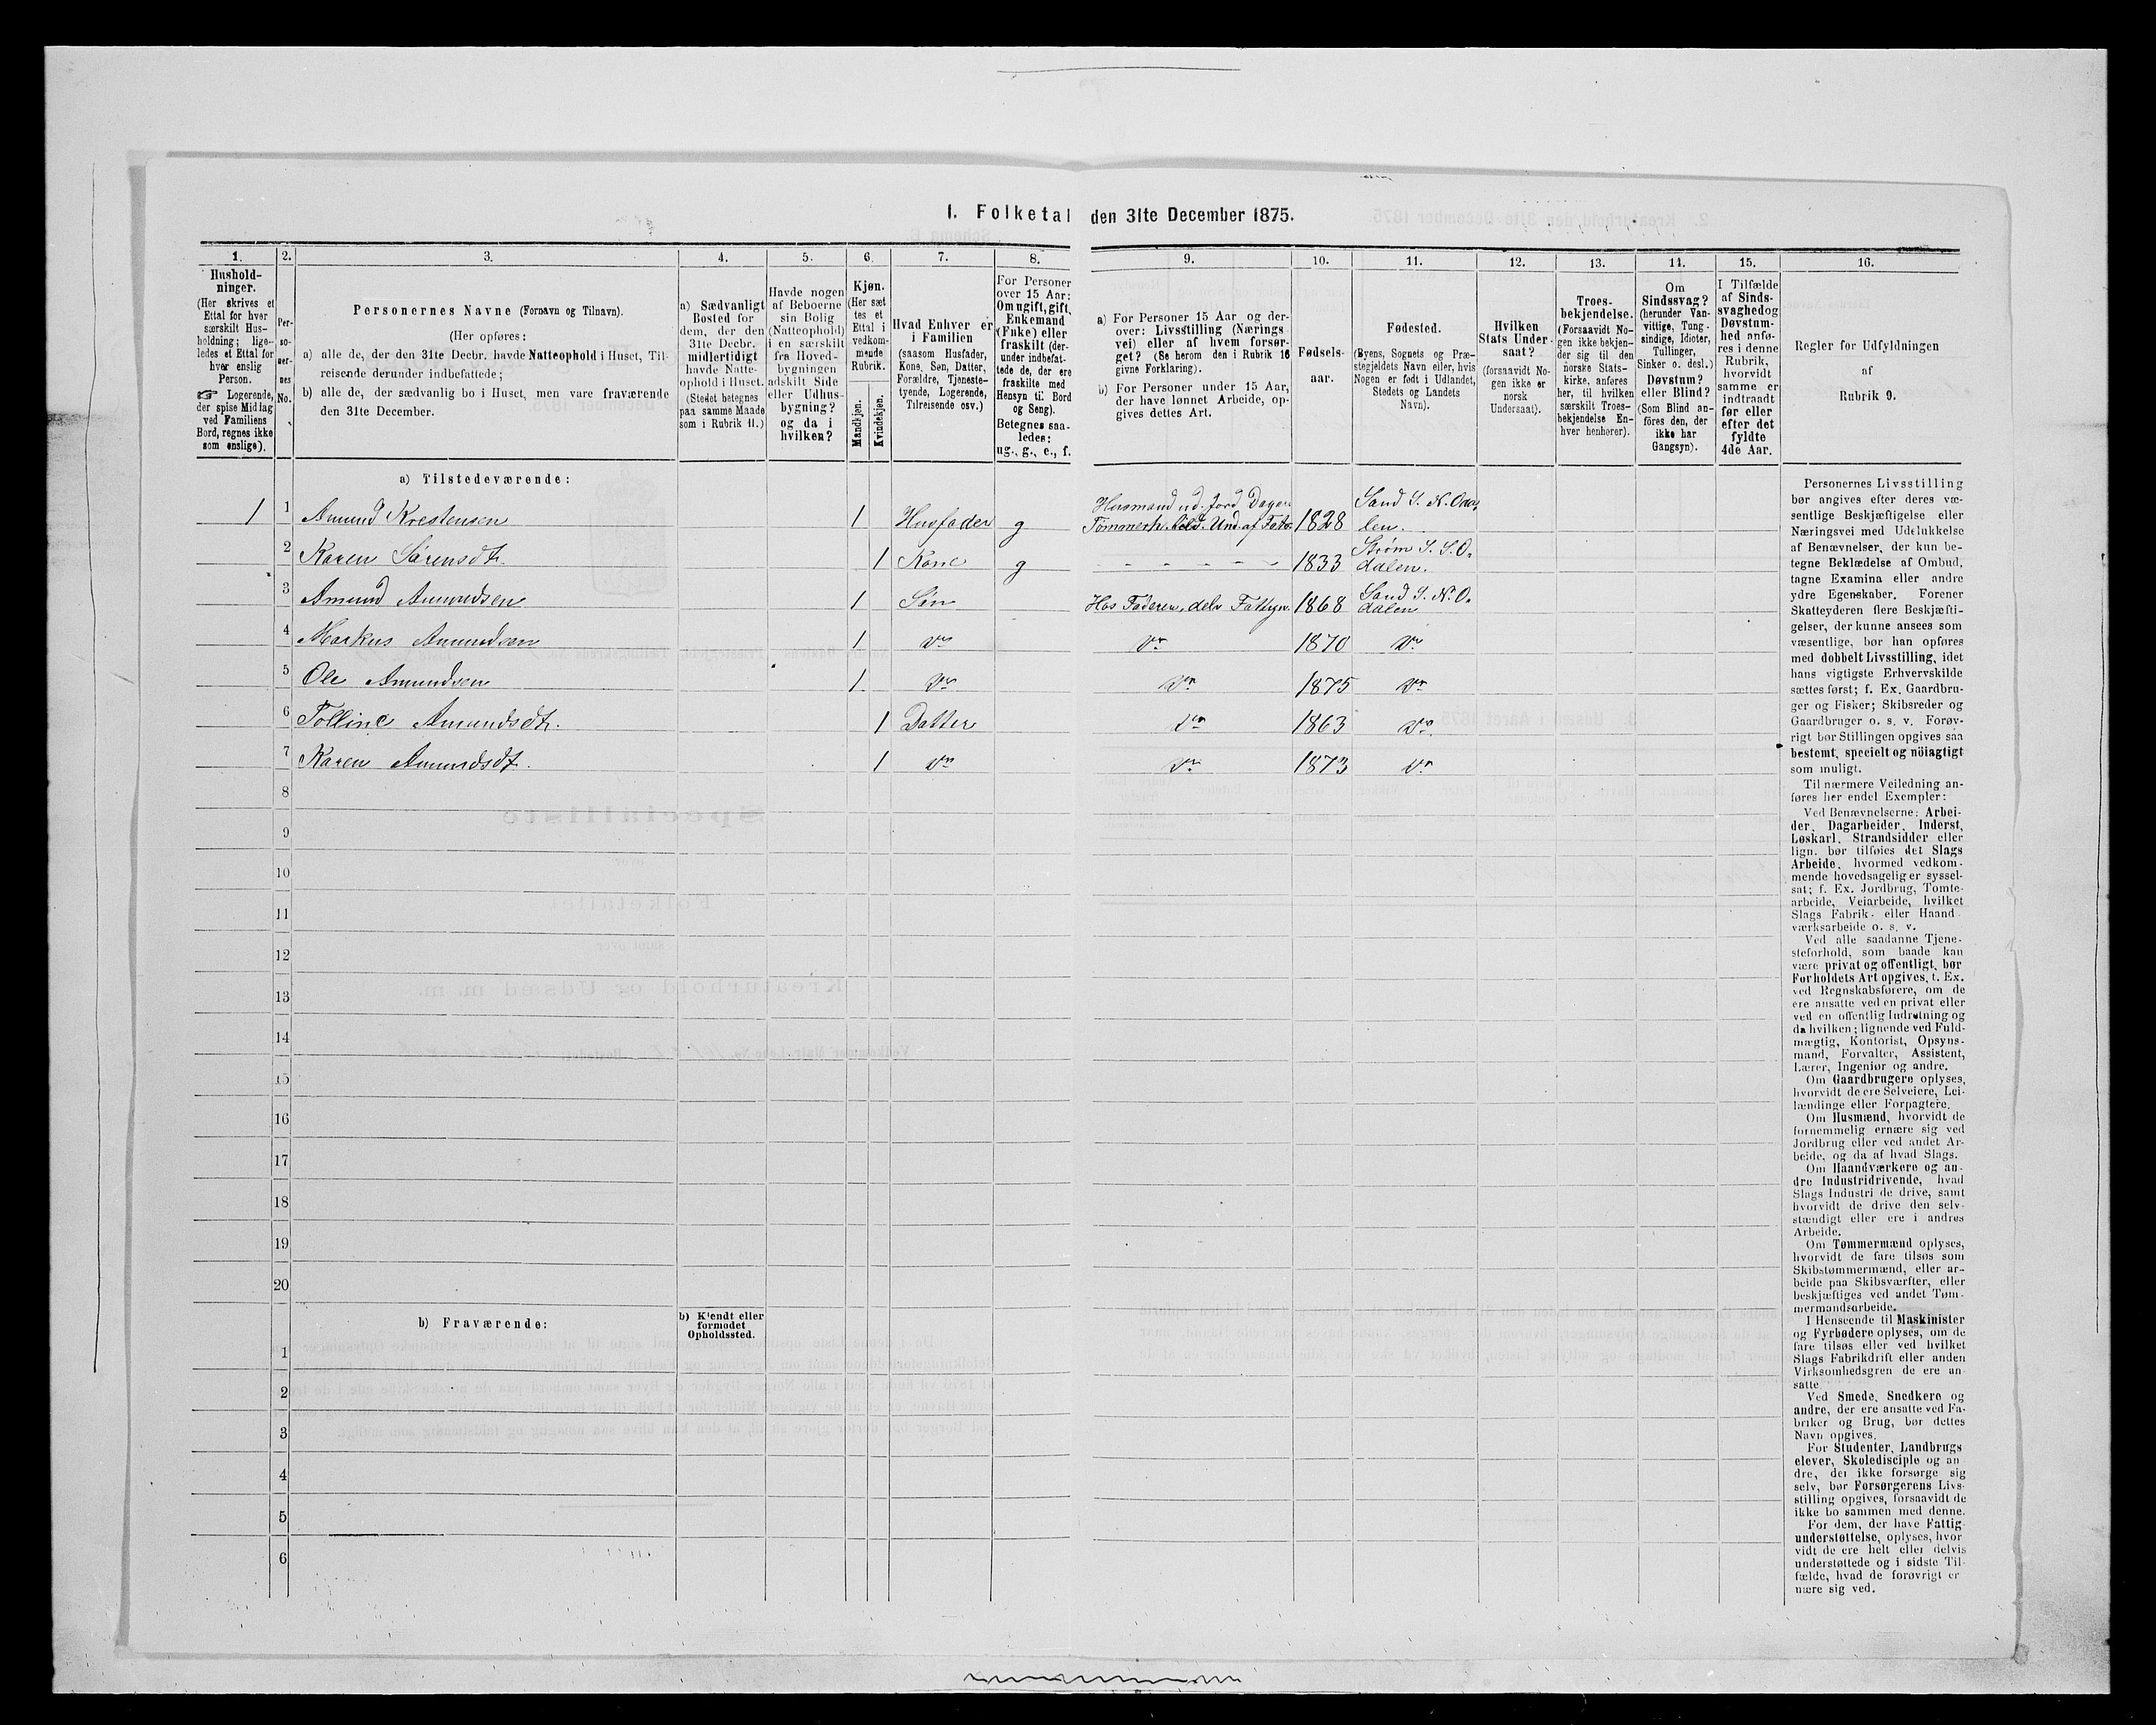 I. Folketal den 31te December 1875.
1.
2.
3.
4.
5.
6.
7.
8.
9.
10.
11.
12.
13.
14.
15.
16.
Hushold-
ninger.
(Her skrives et
Ettal for hver
særskilt Hus-
holdning; lige-
ledes et Ettal for
hver enslig
Person.
☞ Logerende,
der spise Middag
ved Familiens
Bord, regnes ikke
som enslige).
Per-
so-
ner-
nes
No.
Personernes Navne (Fornavn og Tilnavn).
(Her opføres:
a) alle de, der den 31te Decbr. havde Natteophold i Huset, Til-
reisende derunder indbefattede;
b) alle de, der sædvanlig bo i Huset, men vare fraværende
den 31te December.
a) Sædvanligt
Bosted for
dem, der den
31te Decbr.
midlertidigt
havde Natte-
ophold i Huset.
(Stedet betegnes
paa samme Maade
som i Rubrik 11.)
Havde nogen
af Beboerne
sin Bolig
(Natteophold)
i en særskilt
fra Hoved-
bygningen
adskilt Side
eller Udhus-
bygning?
og da i
hvilken?
Kjøn.
(Her sæt
tes et
Ettal i
vedkom-
mende
Rubrik.
Mandkjøn.
Kvindekjøn.
Hvad Enhver er
i Familien
(saasom Husfader,
Kone, Søn, Datter,
Forældre, Tjeneste-
tyende, Logerende,
Tilreisende osv.)
For Personer
over 15 Aar:
Om ugift, gift,
Enkemand
(Enke) eller
fraskilt (der-
under indbefat-
tede de, der ere
fraskilte med
Hensyn til Bord
og Seng).
Betegnes saa-
ledes:
ug., g., e., f.
a) For Personer 15 Aar og der-
over: Livsstilling (Nærings
vei) eller af hvem forsør-
get? (Se herom den i Rubrik 16
givne Forklaring).
b) For Personer under 15 Aar,
der have lønnet Arbeide, op-
gives dettes Art.
Fødsels-
aar.
Fødested.
(Byens, Sognets og Præ-
stegjeldets Navn eller, hvis
Nogen er født i Udlandet,
Stedets og Landets
Navn).
Hvilken
Stats Under
saat?
(forsaavidt No-
gen ikke er
norsk
Undersaat).
Troes-
bekjendelse.
(Forsaavidt No-
gen ikke bekjen-
der sig til den
norske Stats-
kirke, anføres
her, til hvilken
særskilt Troes-
bekjendelse En-
hver henhører).
Om
Sindssvag?
(herunder Van-
vittige, Tung-
sindige, Idioter,
Tullinger,
Sinker o. desl.)
Døvstum?
eller Blind?
(Som Blind an-
føres den, der
ikke har
Gangsyn).
I Tilfælde
af Sinds-
svaghed og
Døvstum-
hed anfø-
res i denne
Rubrik,
hvorvidt
samme er
indtraadt
før eller
efter det
fyldte
4de Aar.
Regler for Udfyldningen
af
Rubrik 9.
a) Tilstedeværende:
1 1 Amund Krestensen 1 Husfader g Husmand ud. Jord Tommerh. 1828 Sand S. N. Oda-
len.
2 Karen Sørensdt. 1 Kone g - - - - - 1833 Strøm S. S. O-
dalen.
3 Amund Amundsen 1 Søn Hos Faderen, delv Fattigv. 1868 Sand S. N. O-
dalen
4 Markus Amundsen 1 do do 1870 do
5 Ole Amundsen 1. do do 1875 do
6 Tolline Amundsdt. 1 Datter do 1863 do
7 Karen Amundsdt. 1 do do 1873 do
8
9
10
11
12
13
14
15
16
17
18
19
20
b) Fraværende:
b) Kjendt eller
formodet
Opholdssted.
1
2
3
4
5
6
Personernes Livsstilling
bør angives efter deres væ-
sentlige Beskjæftigelse eller
Næringsvei med Udelukkelse
af Benævnelser, der kun be-
tegne Beklædelse af Ombud,
tagne Examina eller andre
ydre Egenskaber. Forener
Skatteyderen flere Beskjæfti-
gelser, der kunne ansees som
væsentlige, bør han opføres
med dobbelt Livsstilling, idet
hans vigtigste Erhvervskilde
sættes først; f. Ex. Gaardbru-
ger og Fisker; Skibsreder og
Gaardbruger o. s. v. Forøv-
rigt bør Stillingen opgives saa
bestemt, specielt og nöiagtigt
som muligt.
Til nærmere Veiledning an-
føres her endel Exempler:
Ved Benævnelserne: Arbei-
der, Dagarbeider, Inderst,
Løskarl, Strandsidder eller
lign. bør tilføies det Slags
Arbeide, hvormed vedkom-
mende hovedsagelig er syssel-
sat; f. Ex. Jordbrug, Tomte-
arbeide, Veiarbeide, hvilket
Slags Fabrik- eller Haand-
værksarbeide o. s. v.
Ved alle saadanne Tjene-
steforhold, som baade kan
være privat og offentligt, bør
Forholdets Art opgives, t. Ex.
ved Regnskabsførere, om de
ere ansatte ved en privat eller
ved en offentlig Indretning og
da hvilken; lignende ved Fuld-
mægtig, Kontorist, Opsyns-
mand, Forvalter, Assistent,
Lærer, Ingeniør og andre.
Om Gaardbrugere oplyses,
hvorvidt de ere Selveiere, Lei-
lændinge eller Forpagtere.
Om Husmænd, hvorvidt de
fornemmelig ernære sig ved
Jordbrug eller ved andet Ar-
beide, og da af hvad Slags.
Om Haandværkere og an-
dre Industridrivende, hvad
Slags Industri de drive, samt
hvorvidt de drive den selv-
stændigt eller ere i andres
Arbeide.
Om Tømmermænd oplyses,
hvorvidt de fare tilsøs som
Skibstømmermænd, eller ar-
beide paa Skibsværfter, eller
beskjæftiges ved andet Tøm-
mermandsarbeide.
I Henseende til Maskinister
og Fyrbødere oplyses, om de
fare tilsøs eller ved hvilket
Slags Fabrikdrift eller anden
Virksomhedsgren de ere an-
satte.
Ved Smede, Snedkere og
andre, der ere ansatte ved Fa-
briker og Brug, bør dettes
Navn opgives.
For Studenter, Landbrugs
elever, Skoledisciple og an
dre, der ikke forsørge sig
selv, bør Forsørgerens Livs-
stilling opgives, forsaavidt de
ikke bo sammen med denne.
For dem, der have Fattig-
understøttelse, oplyses, hvor
vidt de ere helt eller delvis
understøttede og i sidste Til-
fælde, hvad de forøvrigt er
nære sig ved.